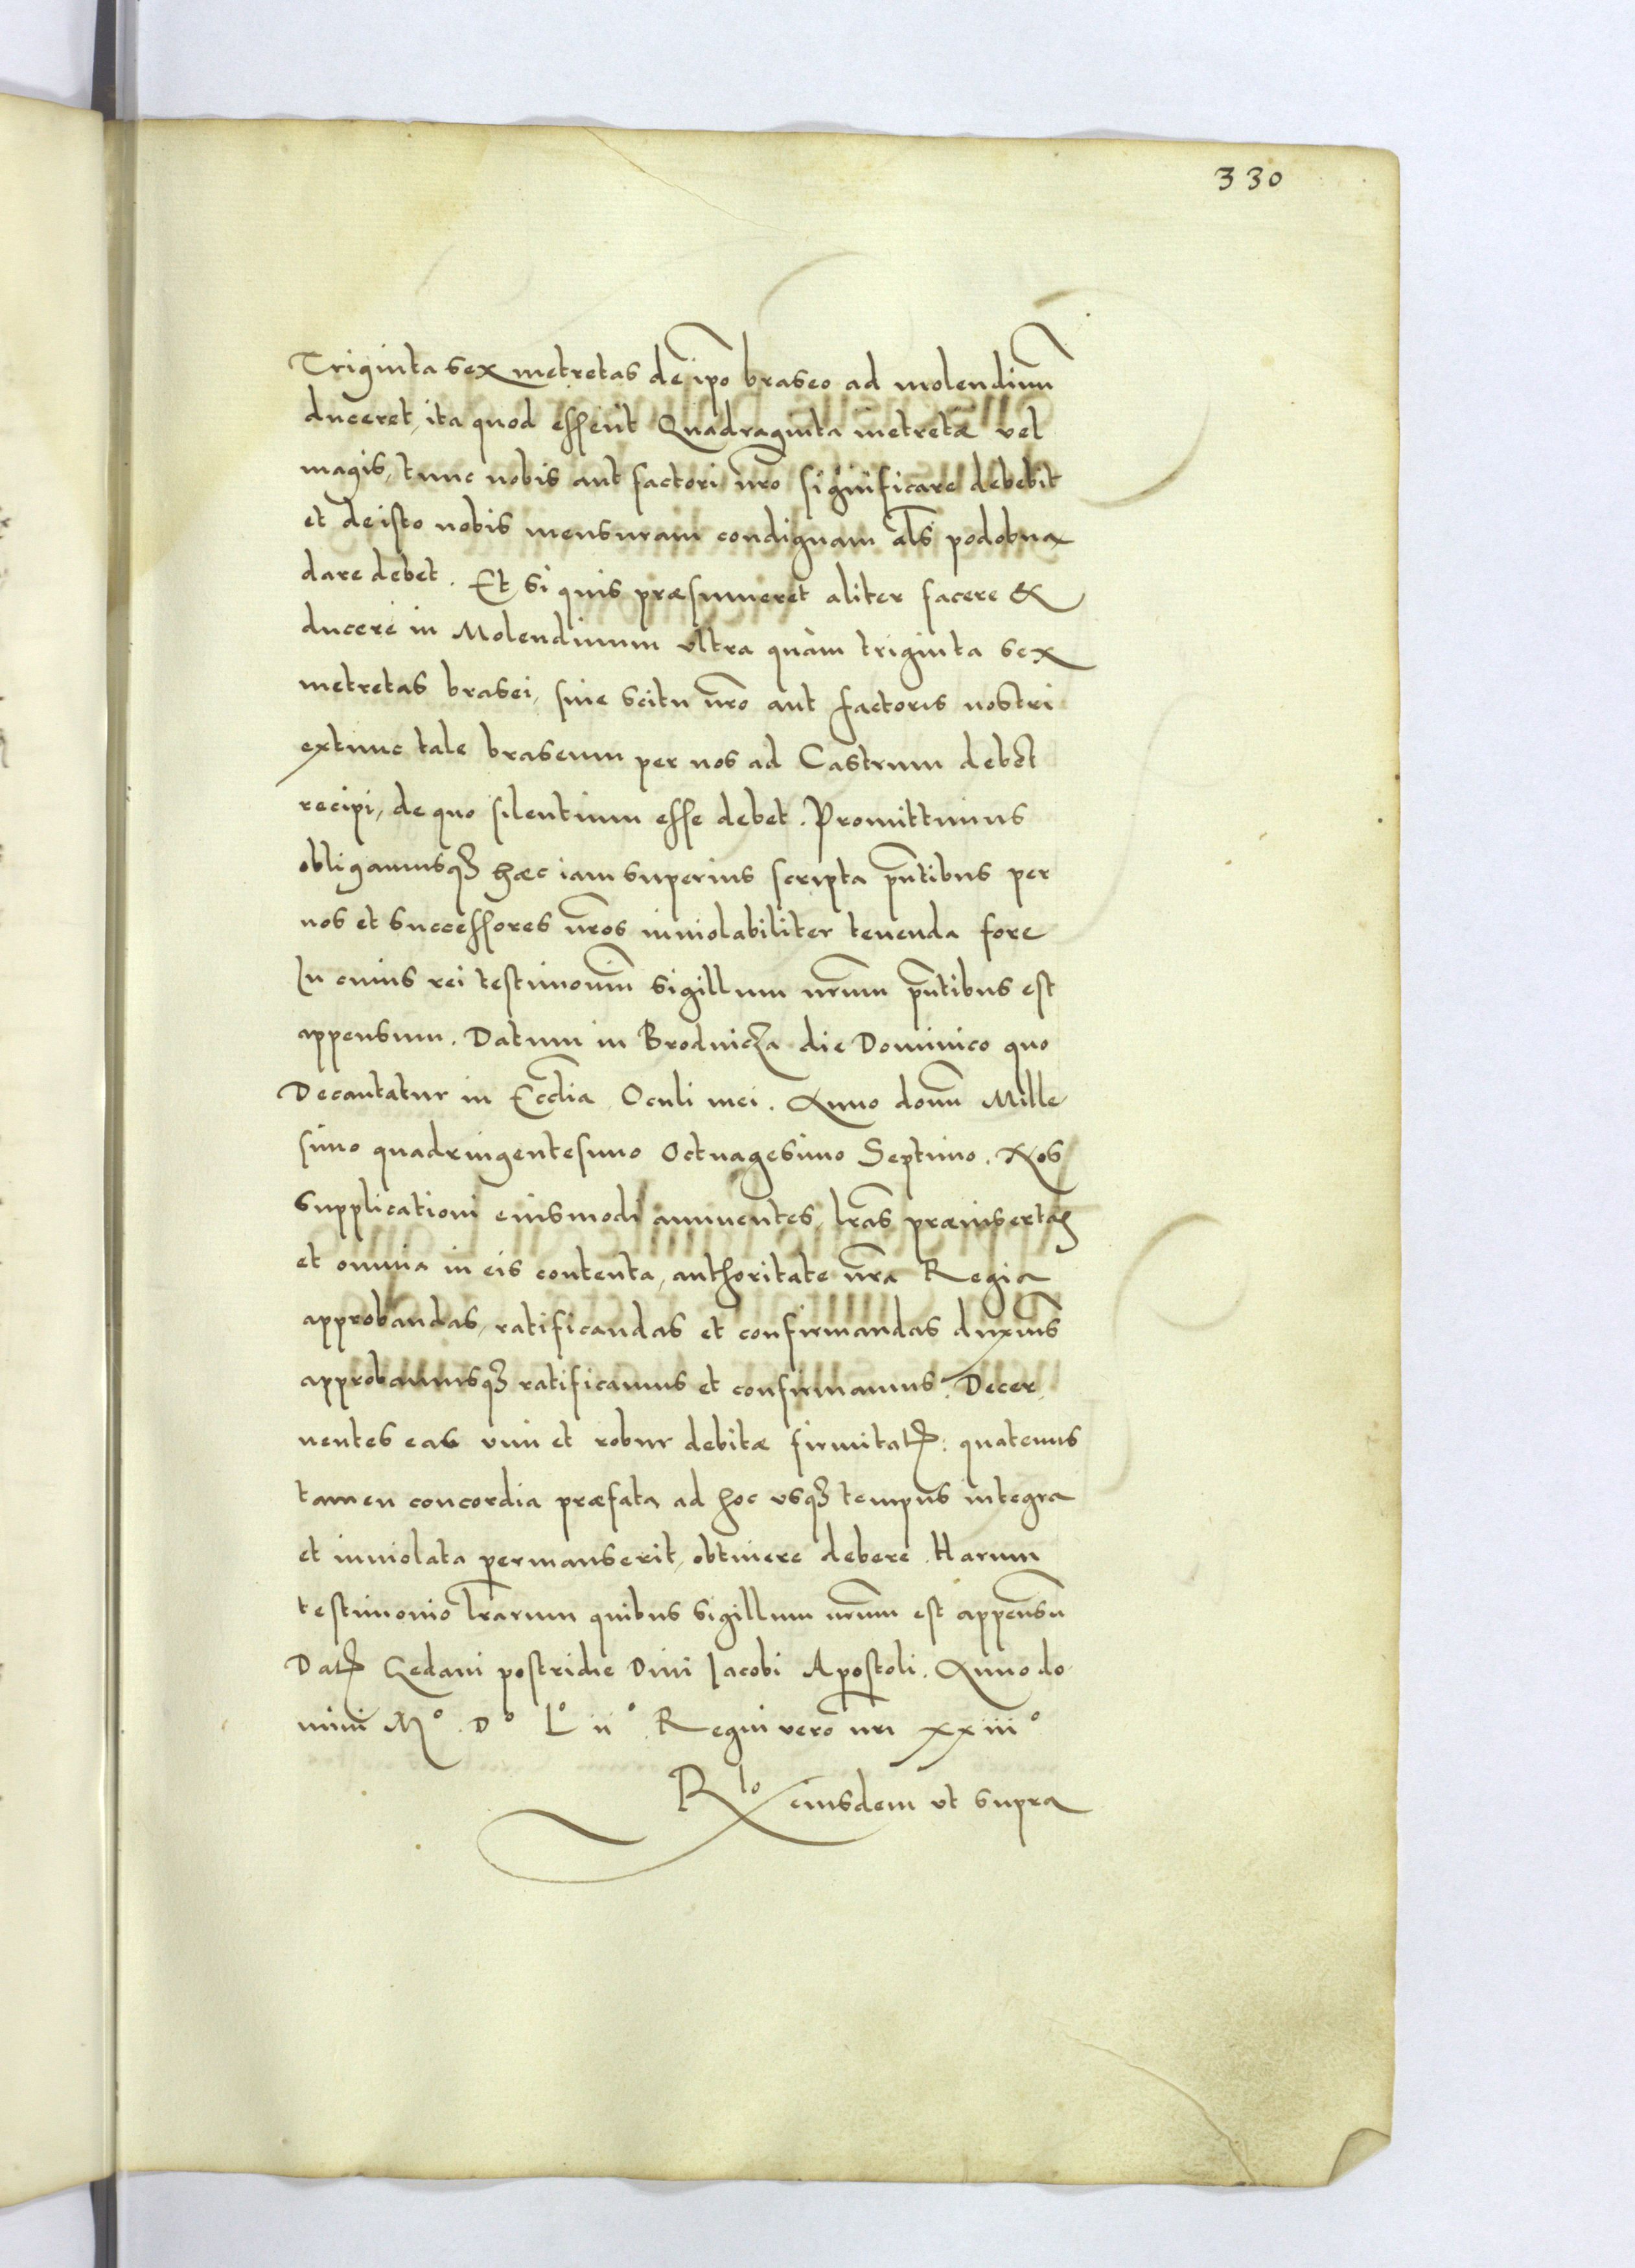 330
Triginta sex metretas de ip̃o braseo ad molendinũ
duceret, ita quod essent Quadraginta metretæ vel
magis, tunc nobis aut factori nr̃o significare debebit
et de isto nobis mensuram condignam al̃s podobna
dare debet. Et si quis præsumeret aliter facere &
ducere in Molendinum ultra quàm triginta sex
metretas brasei, sine scitu nr̃o aut factoris nostri
extunc tale braseum per nos ad Castrum debet
recipi, de quo silentium esse debet. Promittimus
obligamusqȝ hæc iam superius scripta pñtibus per
nos et successores nr̃os inviolabiliter tenenda fore
In cuius rei testimoniũ sigillum nr̃um pñtibus est
appensum. Datum in Brodnicza die Dominico quo
Decantatur in Eccl̃ia Oculi mei. Anno domĩ Mille
simo quadringentesimo Octuagesimo Septimo. Nos
supplicationi eiusmodi annuentes, l̃ras præinsertas
et omnia in eis contenta, authoritate nr̃a Regia
approbandas, ratificandas et confirmandas duxim̃s
approbamusqȝ ratificamus et confirmamus. Decer
nentes eas vim et robur debitæ firmitatꝭ: quatenus
tamen concordia præfata ad hoc usqȝ tempus integra
et inviolata permanserit, obtinere debere. Harum
testimonio l̃rarum quibus sigillum nr̃um est appensũ
Datꝭ Gedani postridie Divi Jacobi Apostoli. Anno do
mini Mº. Dº Lº iiº. Regni vero nr̃i xxiiiº
Rlo eiusdem ut supra